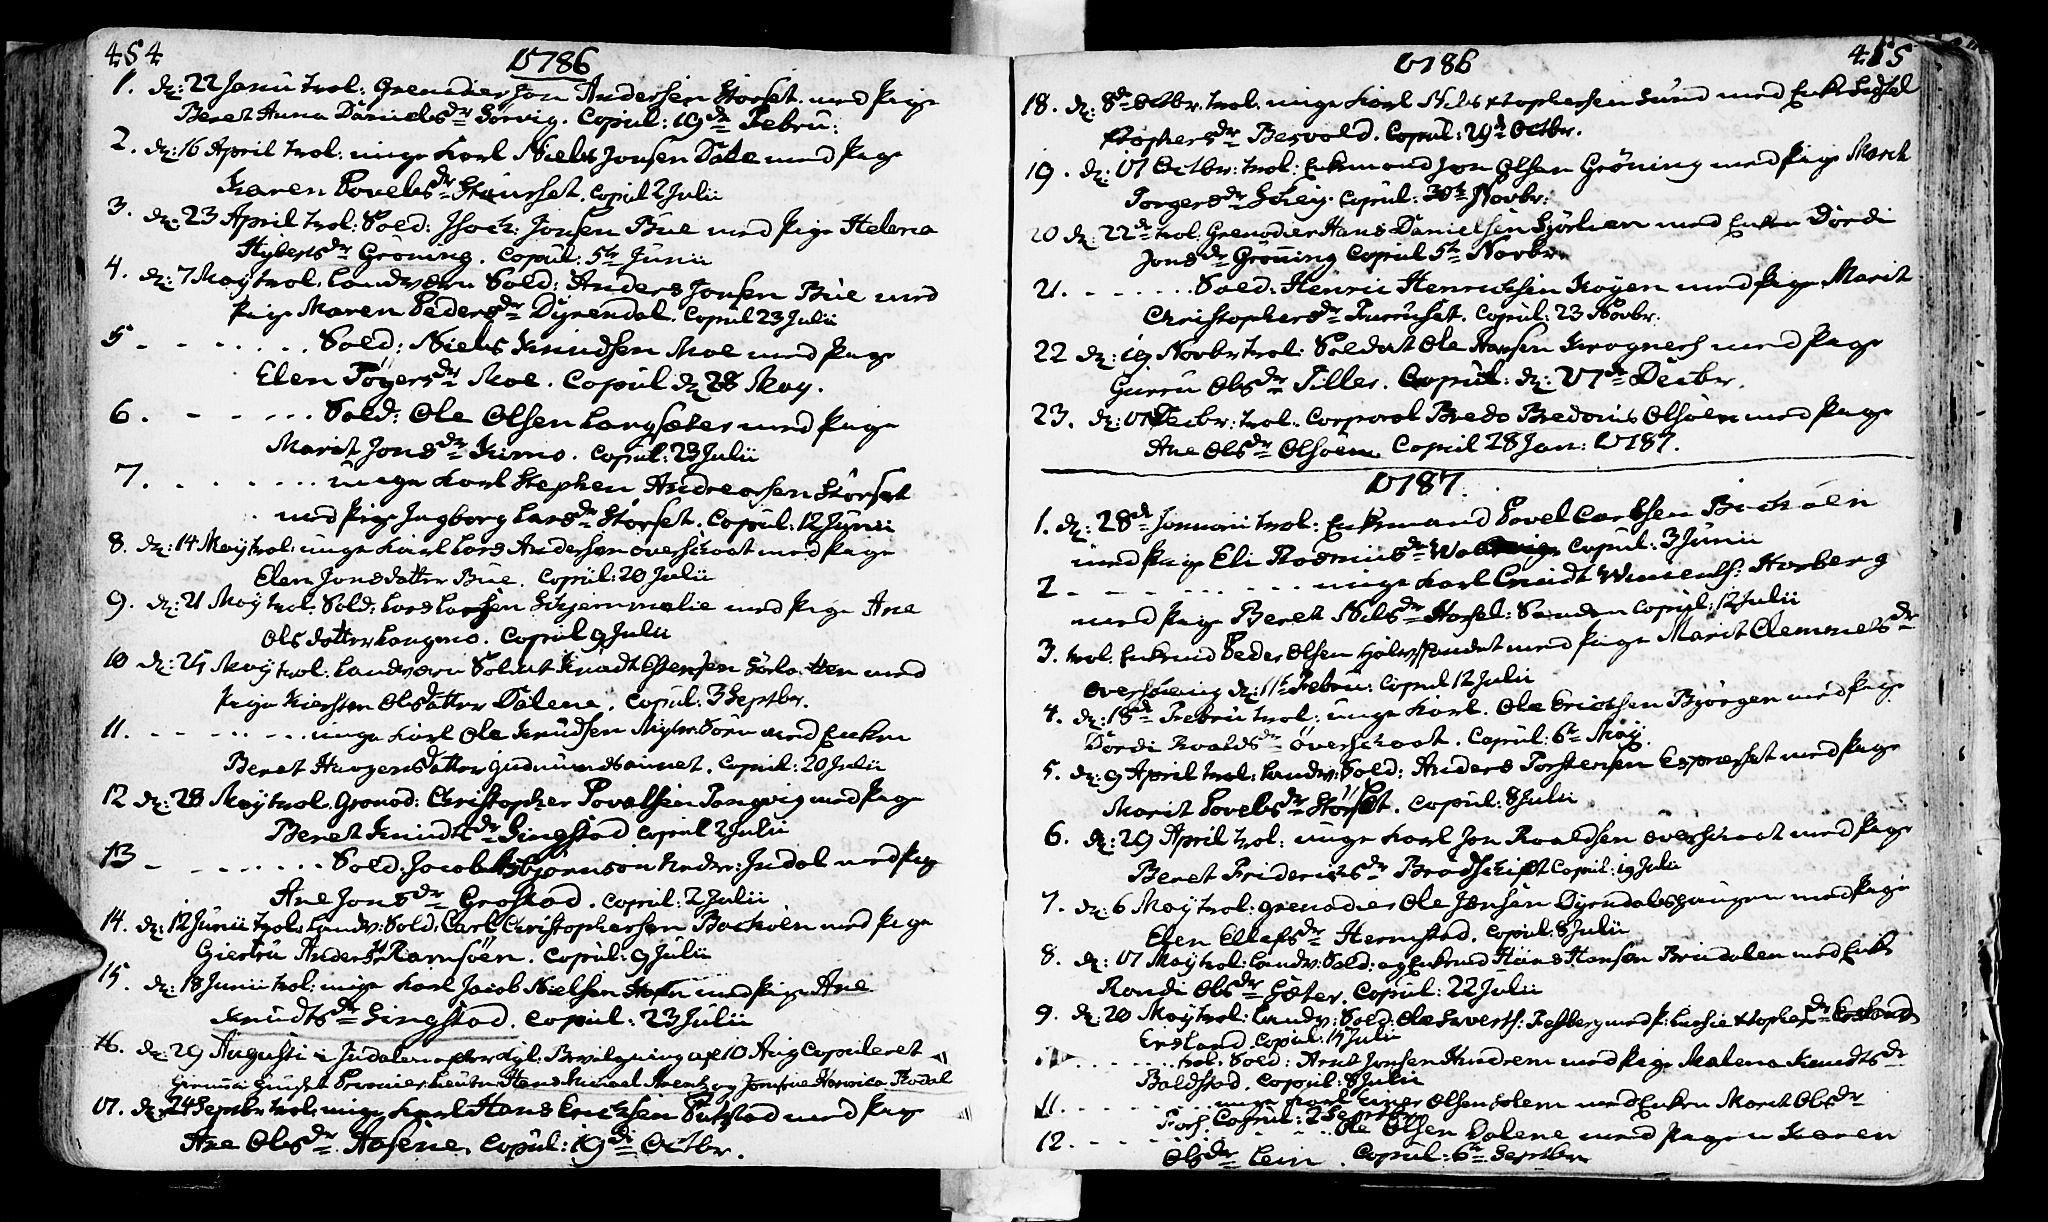 454
1786
1. dn: 22 Janu trol: Grenadier Jon Andersen Storset med Pige
Beret Anna Daniels dr Sorvig. Copul: 19 dn Febru:
2. dn: 16 April trol: unge Karl Niels Jonsen Dale med Pige
Karen Povels dr Staurset. Copul 2 Julii
3. dn: 23 April trol: Sold: Jsach: Jonsen Bue med Pige Helena
Hyberts dr Gröning. Copul: 5te Junii
4. dn: 7 May trol. Landværn Sold: Anders Jonsen Bue med
Pige Maren Peders dr Dyrendal. Copul 23 Julii
5 - - - - . . . Sold: Niels Knudsen Moe med Pige
Elen Töger dr Moe. Copul dn 28 May.
6. - - - . . . Sold: Ole Olsen Langsæter med Pige
Marit Jons dr Kirno. Copul: 23 Julii
7. - - - . . . . unge Karl Stephen Andreasen Störset
med Pige Jngborg Lars dr Störset. Copul: 12 Junii
8. dn: 14 May trol: unge Karl Lars Andersen Overskoot med Pige
Elen Jonsdatter Bue. Copul: 20 Julii
9. dn: 21 May trol: Sold: Lars Larsen Schjermoelie med Pige Ane
Olsdatter Langmo. Copul 9 Julii
10 dn: 25 May trol: Landværn Soldat Knudt Estensen med
Pige Kiersten Olsdatter Dalene. Copul: 3 Septbr.
11. - - - - . . . unge Karl Ole Knudsen med Enken
Beret Haagensdatter Gudmundsaunet. Copul: 20 Julii
12 dn: 28 May trol. Grenad: Christopher Povelsen Tongvig med Pige
Beret Knudts dr Singstad Copul 2 Julii
13 - . . . . . Sold. Jacob Asbjörnson Nedre: Jndal med Pig
Ane Jons dr Grostad. Copul: 2 Julii
14. dn: 12 Junii trol: Landv: Sold: Carl Christophersen Bachöen med Pige
Giertru Anders dr Ramsöen. Copul: 9 Julii
15. dn: 18 Junii trol: unge Karl Jacob Nielsen med Pige Ane
Knudts dr Singstad. Copul: 23 Julii
16. dn: 29 Augusti i Jndalen efter Kgl: Bevilgning af 10 Aug Copuleret
Premier Lieutn Hans Michael Arentz og Jomfrue Rodal
17. dn: 24 Septbr trol: unge Karl Hans Erichsen Putstad med Pige
Ane Ols dr Aasene. Copul: 19 de Octbr.
455
1786
18. dn: 8 de Octbr. trol: unge Karl Nils Xtophersen Lund med Enke Sigtel
Xtophers dr Besvold. Copul: 29 d Octbr.
19. dn: 17 Octbr: trol: Enkemand Jon Olsen Gröning med Pige Marit
Torgers dr Schey. Copul: 30te Novbr:
20 dn: 22 de trol: Grenadier Hans Danielsen Sjörlien med Enken Dordi
Jons dr Gröning Copul 5te Novbr.
21. - - - . . . . Sold: Henric Henrichsen Moyen med Pige Marit
Christophers dr Furruset. Copul: 23 Novbr.
22 dn: 19 Novbr trol: Soldat Ole Hansen Krognes med Pige
Gurru Ols dr Tiller. Copul: dn: 17 de Decbr.
23. dn: 17 Decbr: trol: Corporal Bredo Bredonis Olsöen med Pige
Ane Ols dr Olsöen. Copul 28 Jan: 1787.
1787.
1. dn: 28 d Januarii trol: Enkemand Povel Carlsen Bachöen
med Pige Eli Rasmus dr Copul: 3 Junii
2 - - - - . . . unge Karl Cnudt Winsents: Horberg
med Pige Beret Nils dr Horsel: Sanden Copul: 12 Julii
3. trol: Enkmd Peder Olsen med Pige Marit Clemmets dr
Overhöeing dn: 11te Febru: Copul 12 Julii
4. dn: 18 d Febru trol: unge Karl. Ole Erichsen Björgen med Pige
Dordi Roalds dr Överskoot. Copul: 6te May.
5. dn: 9 April trol: Landv: Sold: Anders Torstensen Espaaset med Pige
Marit Povels dr Störset. Copul: 8 Julii
6. dn: 29 April trol: unge Karl Jon Roaldsen Overskoot med Pige
Beret Friderichs dr Bradskift Copul: 19 Julii
7. dn: 6 May trol: Grenadier Ole Jensen Dyrndalshaugen med Pige
Elen Ellefs dr Hermstad. Copul: 8 Julii
8. dn: 17 May trol: Landv: Sold: og Enkemd Hans Hansen Brudalen med Enke
Randi Ols dr Sæter. Copul: 22 Julii
9. dn: 20 May trol: Landv: Sold: Ole Sivertss: med P:
Ersland Copul: 14 Julii
- - - . . . . trol: Sold: Arnt Jonsen Hundrem med Pige Malena Knudts dr
Baldstad. Copul: 8 Julii
11. - - - . . . . unge Karl Einer Olsen Solem med Enken Marit Ols dr
Fors Copul: 2 Septbr
12. - - - - . . . Ole Olsen Dalene med Pigen Karen
Ols dr Lein. Copul: 6te Septbr